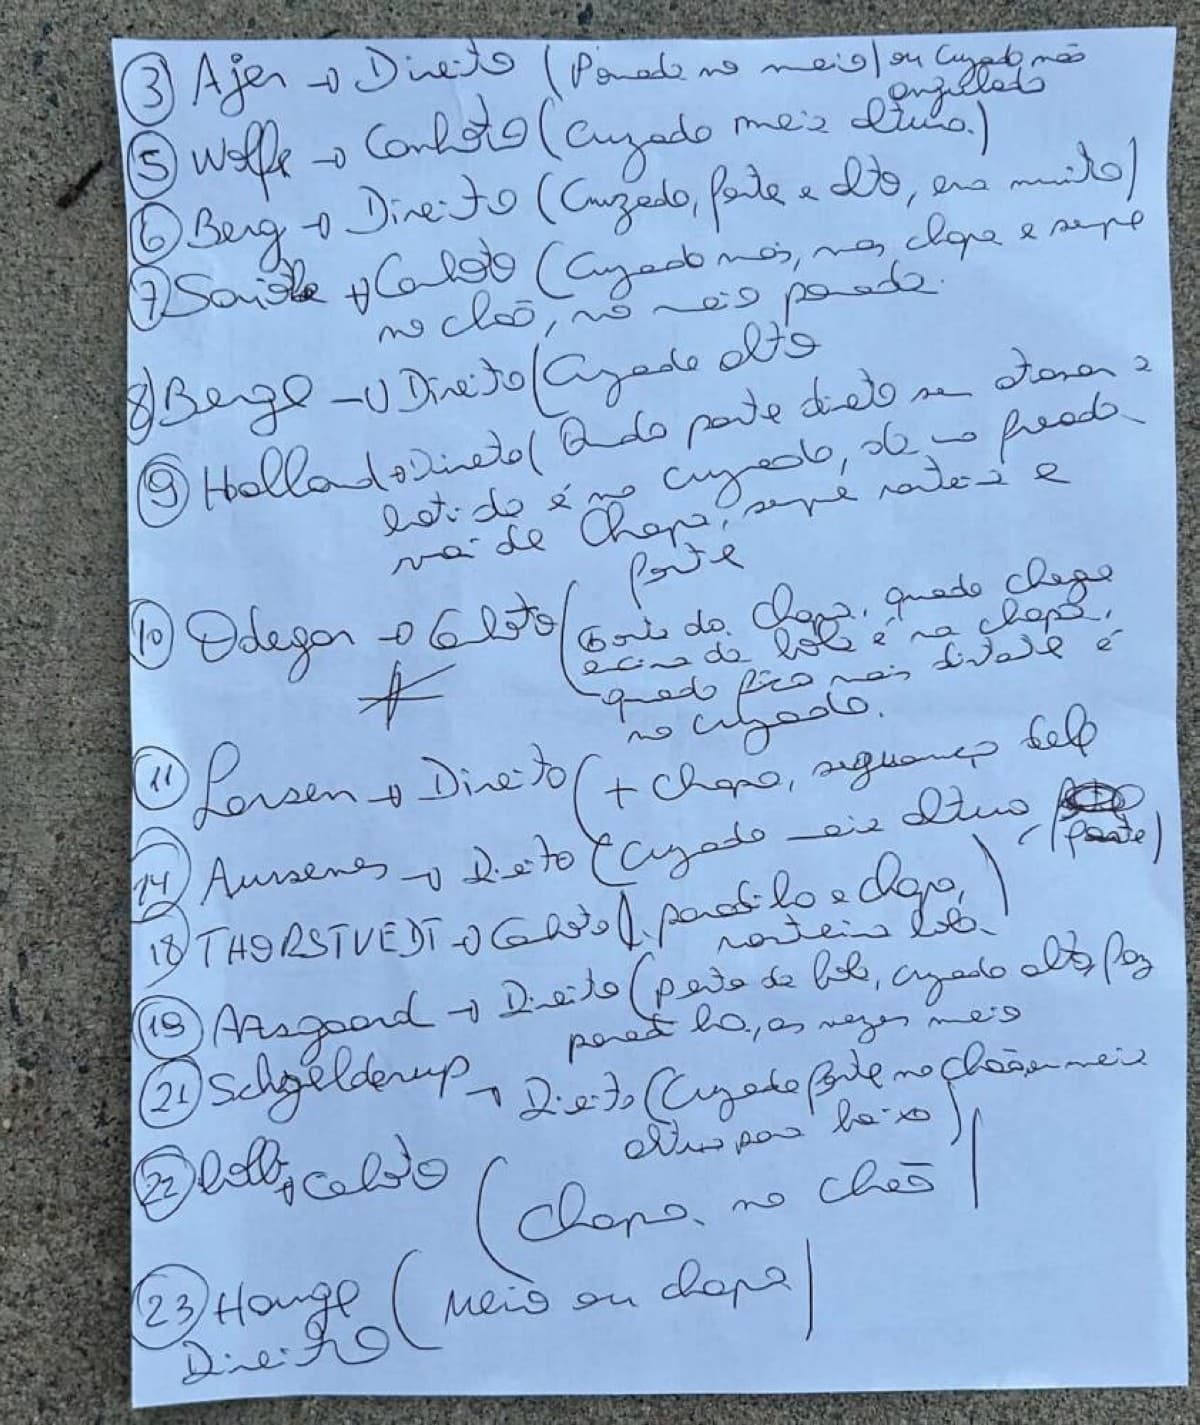 3) Ajer → Direito (Parade no meio) ou cruzado não
angulado
5 Wolfe → Canhoto (Cruzado meia altura.)
6 Berg → Direito (Cruzado, forte e alto, era muito)
7) → Canhoto (Cruzado mas, na chapa e sempre
no chão, no meio parado.
8) Berge → Direito (Cruzado alto
9 Holland → Direito (Quando parte direto sem atrasar a
batida é no cruzado, se na freada
vai de Chapa, sempre rasteira e
forte
10) Odegar → Canhoto ( da chapa, quando chega
acima da bola é na chapa,
quando fica mais distante é
no cruzado.
11 Larsen → Direito (+ chapa, segurança
14) Aursenes → Direito (Cruzado meia altura (forte)
18) THORSTVEDT → Canhoto (. paradilho e chapa,)
rasteira
19) Aasgaard → Direito (perto da bola, cruzado alto, faz
, as vezes meio
21) Schjelderup → Direito (Cruzado forte no chão, ou meia
altura para baixo)
22 → Canhoto (Chapa no chão)
23) Hauge (Meio ou chapa)
Direito